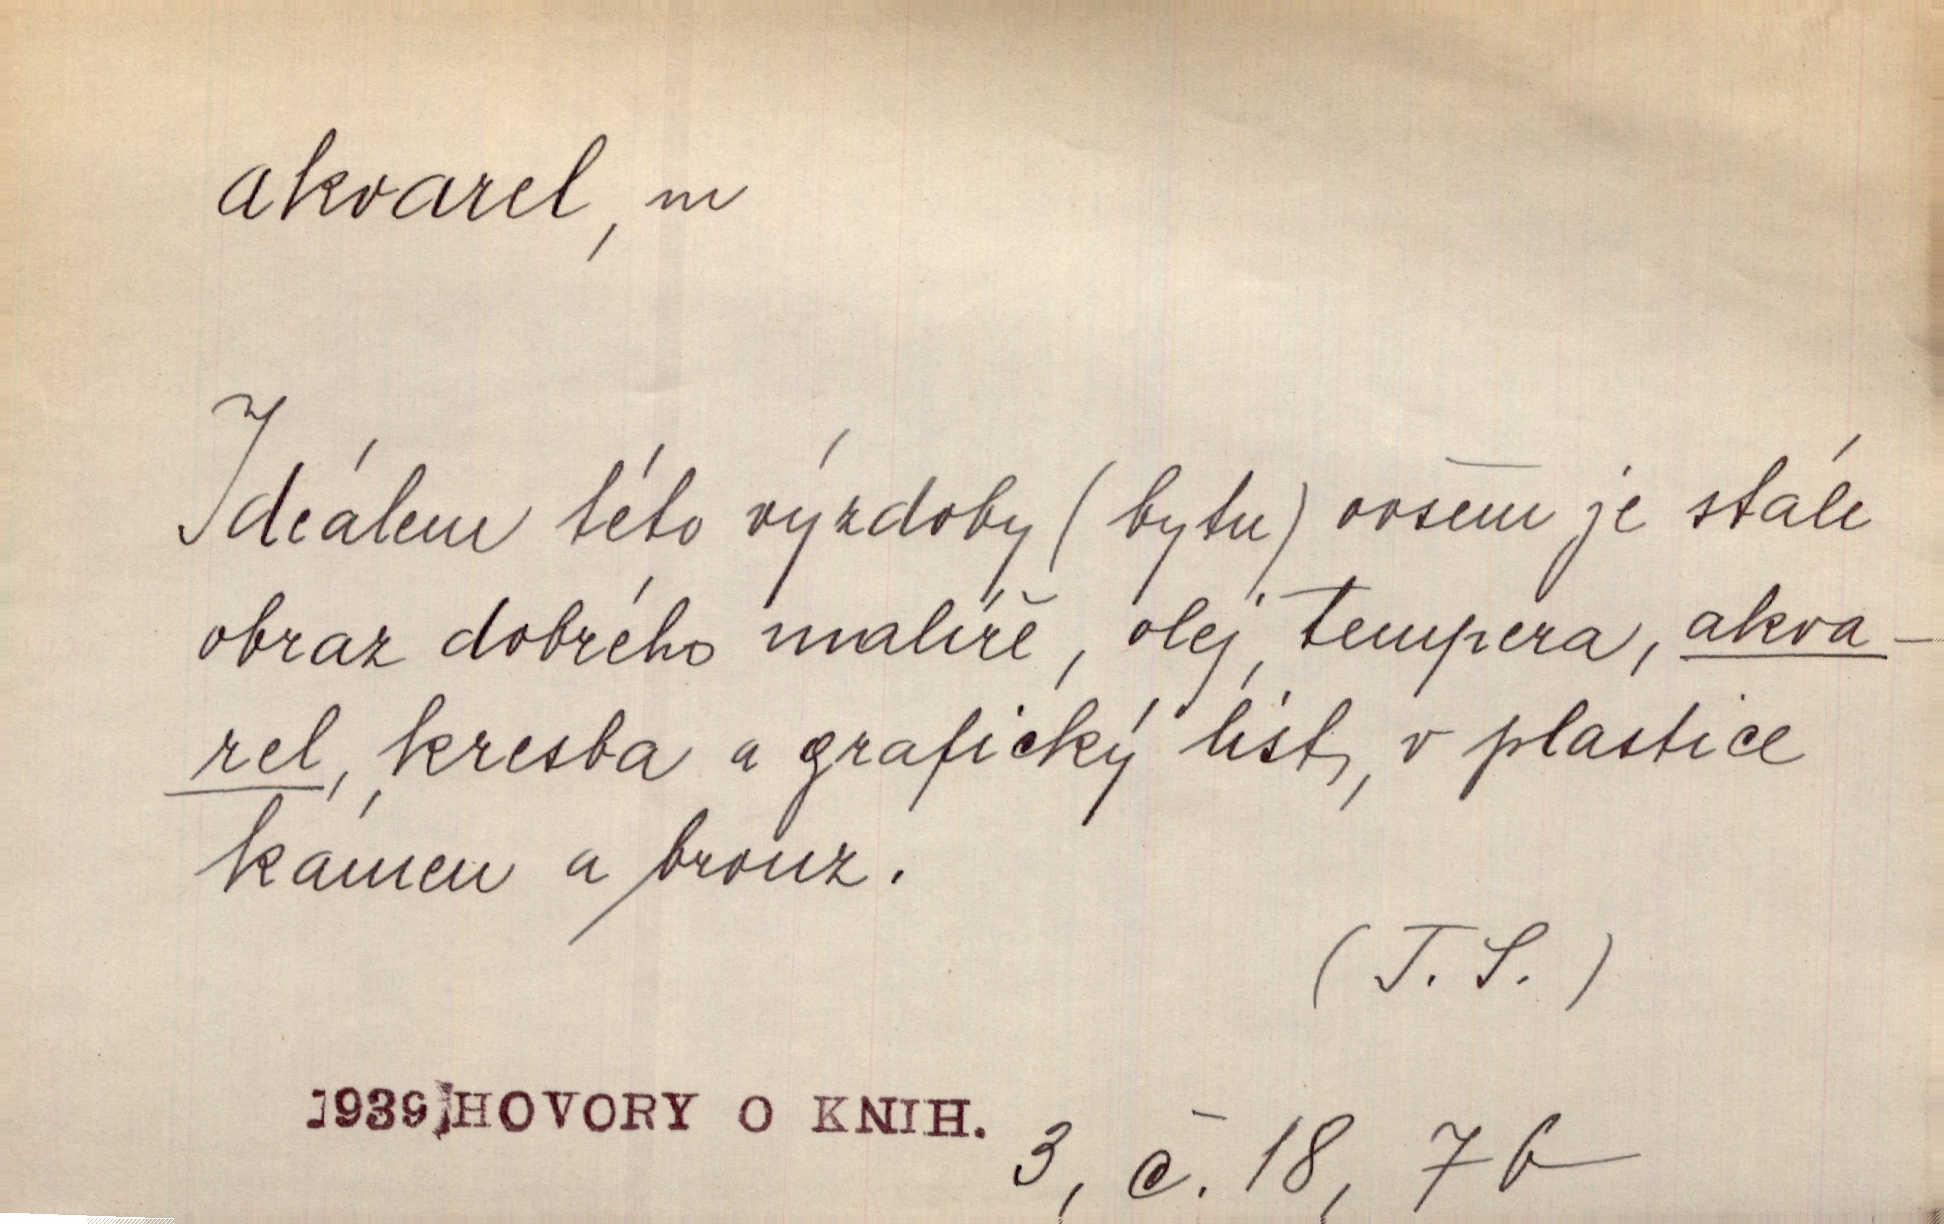 akvarel, m
Ideálem této výzdoby (bytu) ovšem je stále
obraz dobrého malíře, olej, tempera, akva-
rel, kresba a grafický list, v plastice
kámen a bronz.
(T. S.)
1939 HOVORY O KNIH. 3, č. 18, 7b